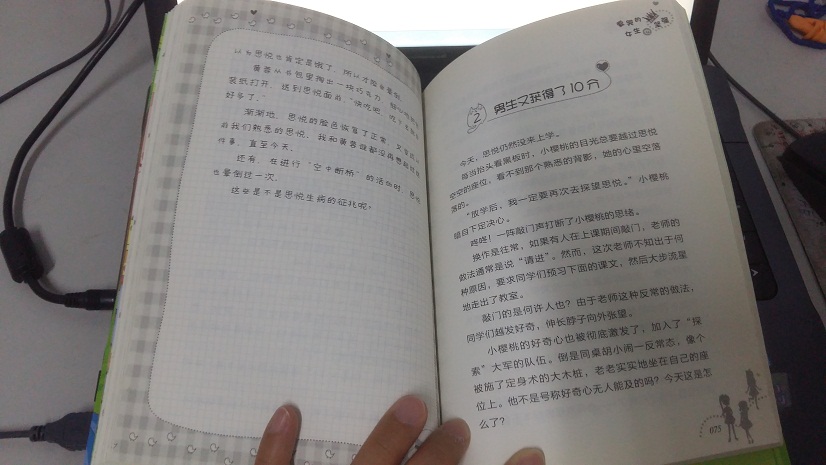 以为思悦也肯定是饿了，所以才
黄蓉从书包里掏出一块巧克力
装纸打开，送到思悦面前，“快吃吧，吃了
好多了。”
渐渐地，思悦的脸色恢复了正常，又
由我们熟悉的思悦，我和黄蓉谁都没再
件事，直至今天。
还有，在进行“空中断桥”的活动时，思悦
也晕倒过一次。
这会是不是思悦生病的征兆呢。
女生
2 男生又获得了10分
今天，思悦仍然没来上学。
每当抬头看黑板时，小樱桃的目光总要越过思悦
空空的座位，看不到那个熟悉的背影，她的心里空落
落的。
“放学后，我一定要再次去探望思悦。”小樱桃
暗自下定决心。
咚咚！一阵敲门声打断了小樱桃的思绪。
换作是往常，如果有人在上课期间敲门，老师的
做法通常是说“请进”。然而，这次老师不知出于何
种原因，要求同学们预习下面的课文，然后大步流星
地走出了教室。
敲门的是何许人也？由于老师这种反常的做法，
同学们越发好奇，伸长脖子向外张望。
小樱桃的好奇心也被彻底激发了，加入了“探
索”大军的队伍。倒是同桌胡小闹一反常态，像个
被施了定身术的大木桩，老老实实地坐在自己的座
位上。他不是号称好奇心无人能及的吗？今天这是怎
么了？
075